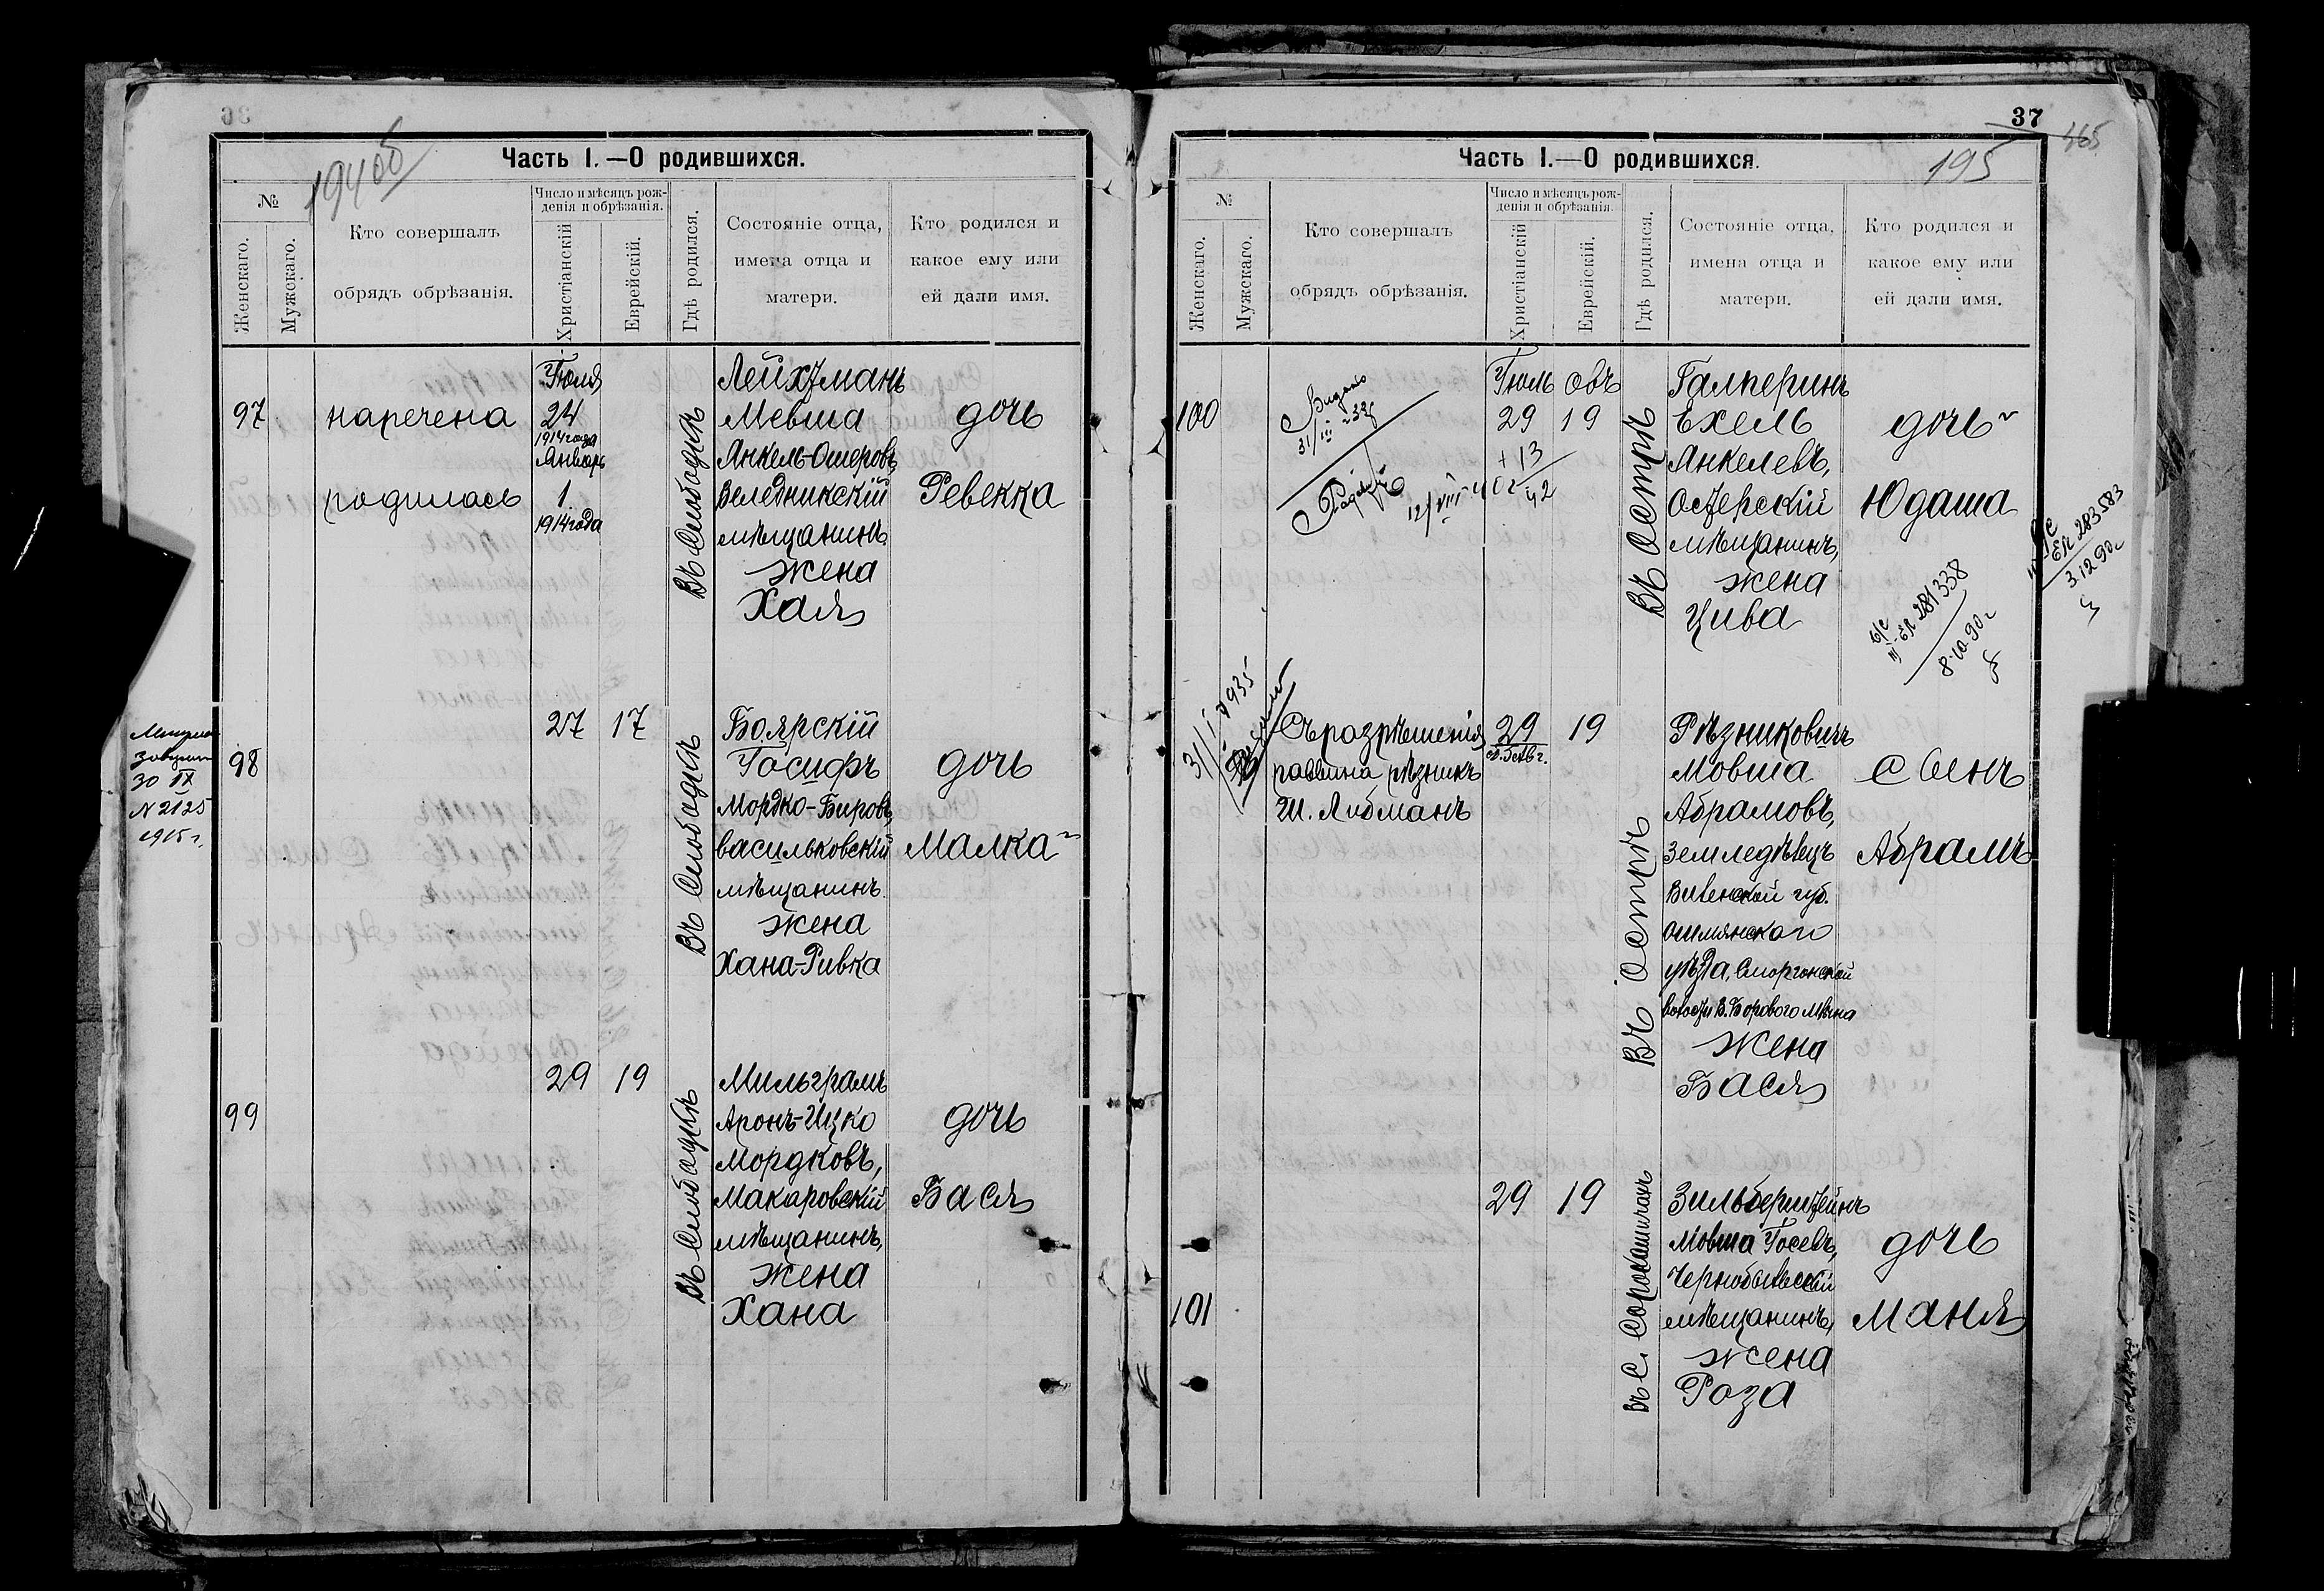 194 об
Часть I.—О родившихся.
№
Женскаго.
Мужскаго.
Кто совершалъ
обрядъ обрѣзанія.
Число и мѣсяцъ рож-
денія и обрѣзанія.
Христіанскій
Еврейскій.
Гдѣ родился.
Состояніе отца,
имена отца и
матери.
Кто родился и
какое ему или
ей дали имя.
97
наречена
родилась
Іюля
24
1914 года
Январь
1
1914 года
Въ Слободкѣ
Лейхтманъ
Мевша
Янкель-Ошеровъ
Веледникскій
мѣщанинъ
жена
Хая
дочь
Ревекка
30 IX
N 2125
1915 г.
98
27 17
Въ Слободкѣ
Боярскій
Іосифъ
Мордко-Беровъ
васильковскій
мѣщанинъ.
жена
Хана-Ривка
дочь
Малка
99
29 19
Въ Слободкѣ
Мильграмъ
Аронъ-Ицко
Мордковъ,
Макаровскій
мѣщанинъ,
жена
Хана
дочь
Бася
37
165
195
Часть I.—О родившихся.
№
Женскаго.
Мужскаго.
Кто совершалъ
обрядъ обрѣзанія.
Число и мѣсяцъ рож-
денія и обрѣзанія.
Христіанскій
Еврейскій.
Гдѣ родился.
Состояніе отца,
имена отца и
матери.
Кто родился и
какое ему или
ей дали имя.
100
Видано
31/III
Іюль овъ
29 19
+13
42
Въ Острѣ
Галперинъ
Ехель
Янкелевъ,
Остерскій
мѣщанинъ,
жена
Цива
дочь
Юдаша
II-ЕЛ 281338
8.10.90г
ЕЛ 283583
3.12.90г
31/I 1935
Съ разрѣшенія
раввина рѣзникъ
Ш. Либманъ
29
19
Въ Острѣ
Рѣзниковичъ
Мовша
Абрамовъ,
земледѣлецъ
Виленской губ.
Ошмянскаго
уѣзда, Сморгонской
жена
Бася
сынъ
Абрамъ
101
29 19
Зильберштейнъ
Мовша Іосевъ,
Чернобыльскій
мѣщанинъ,
жена
Роза
дочь
Маня